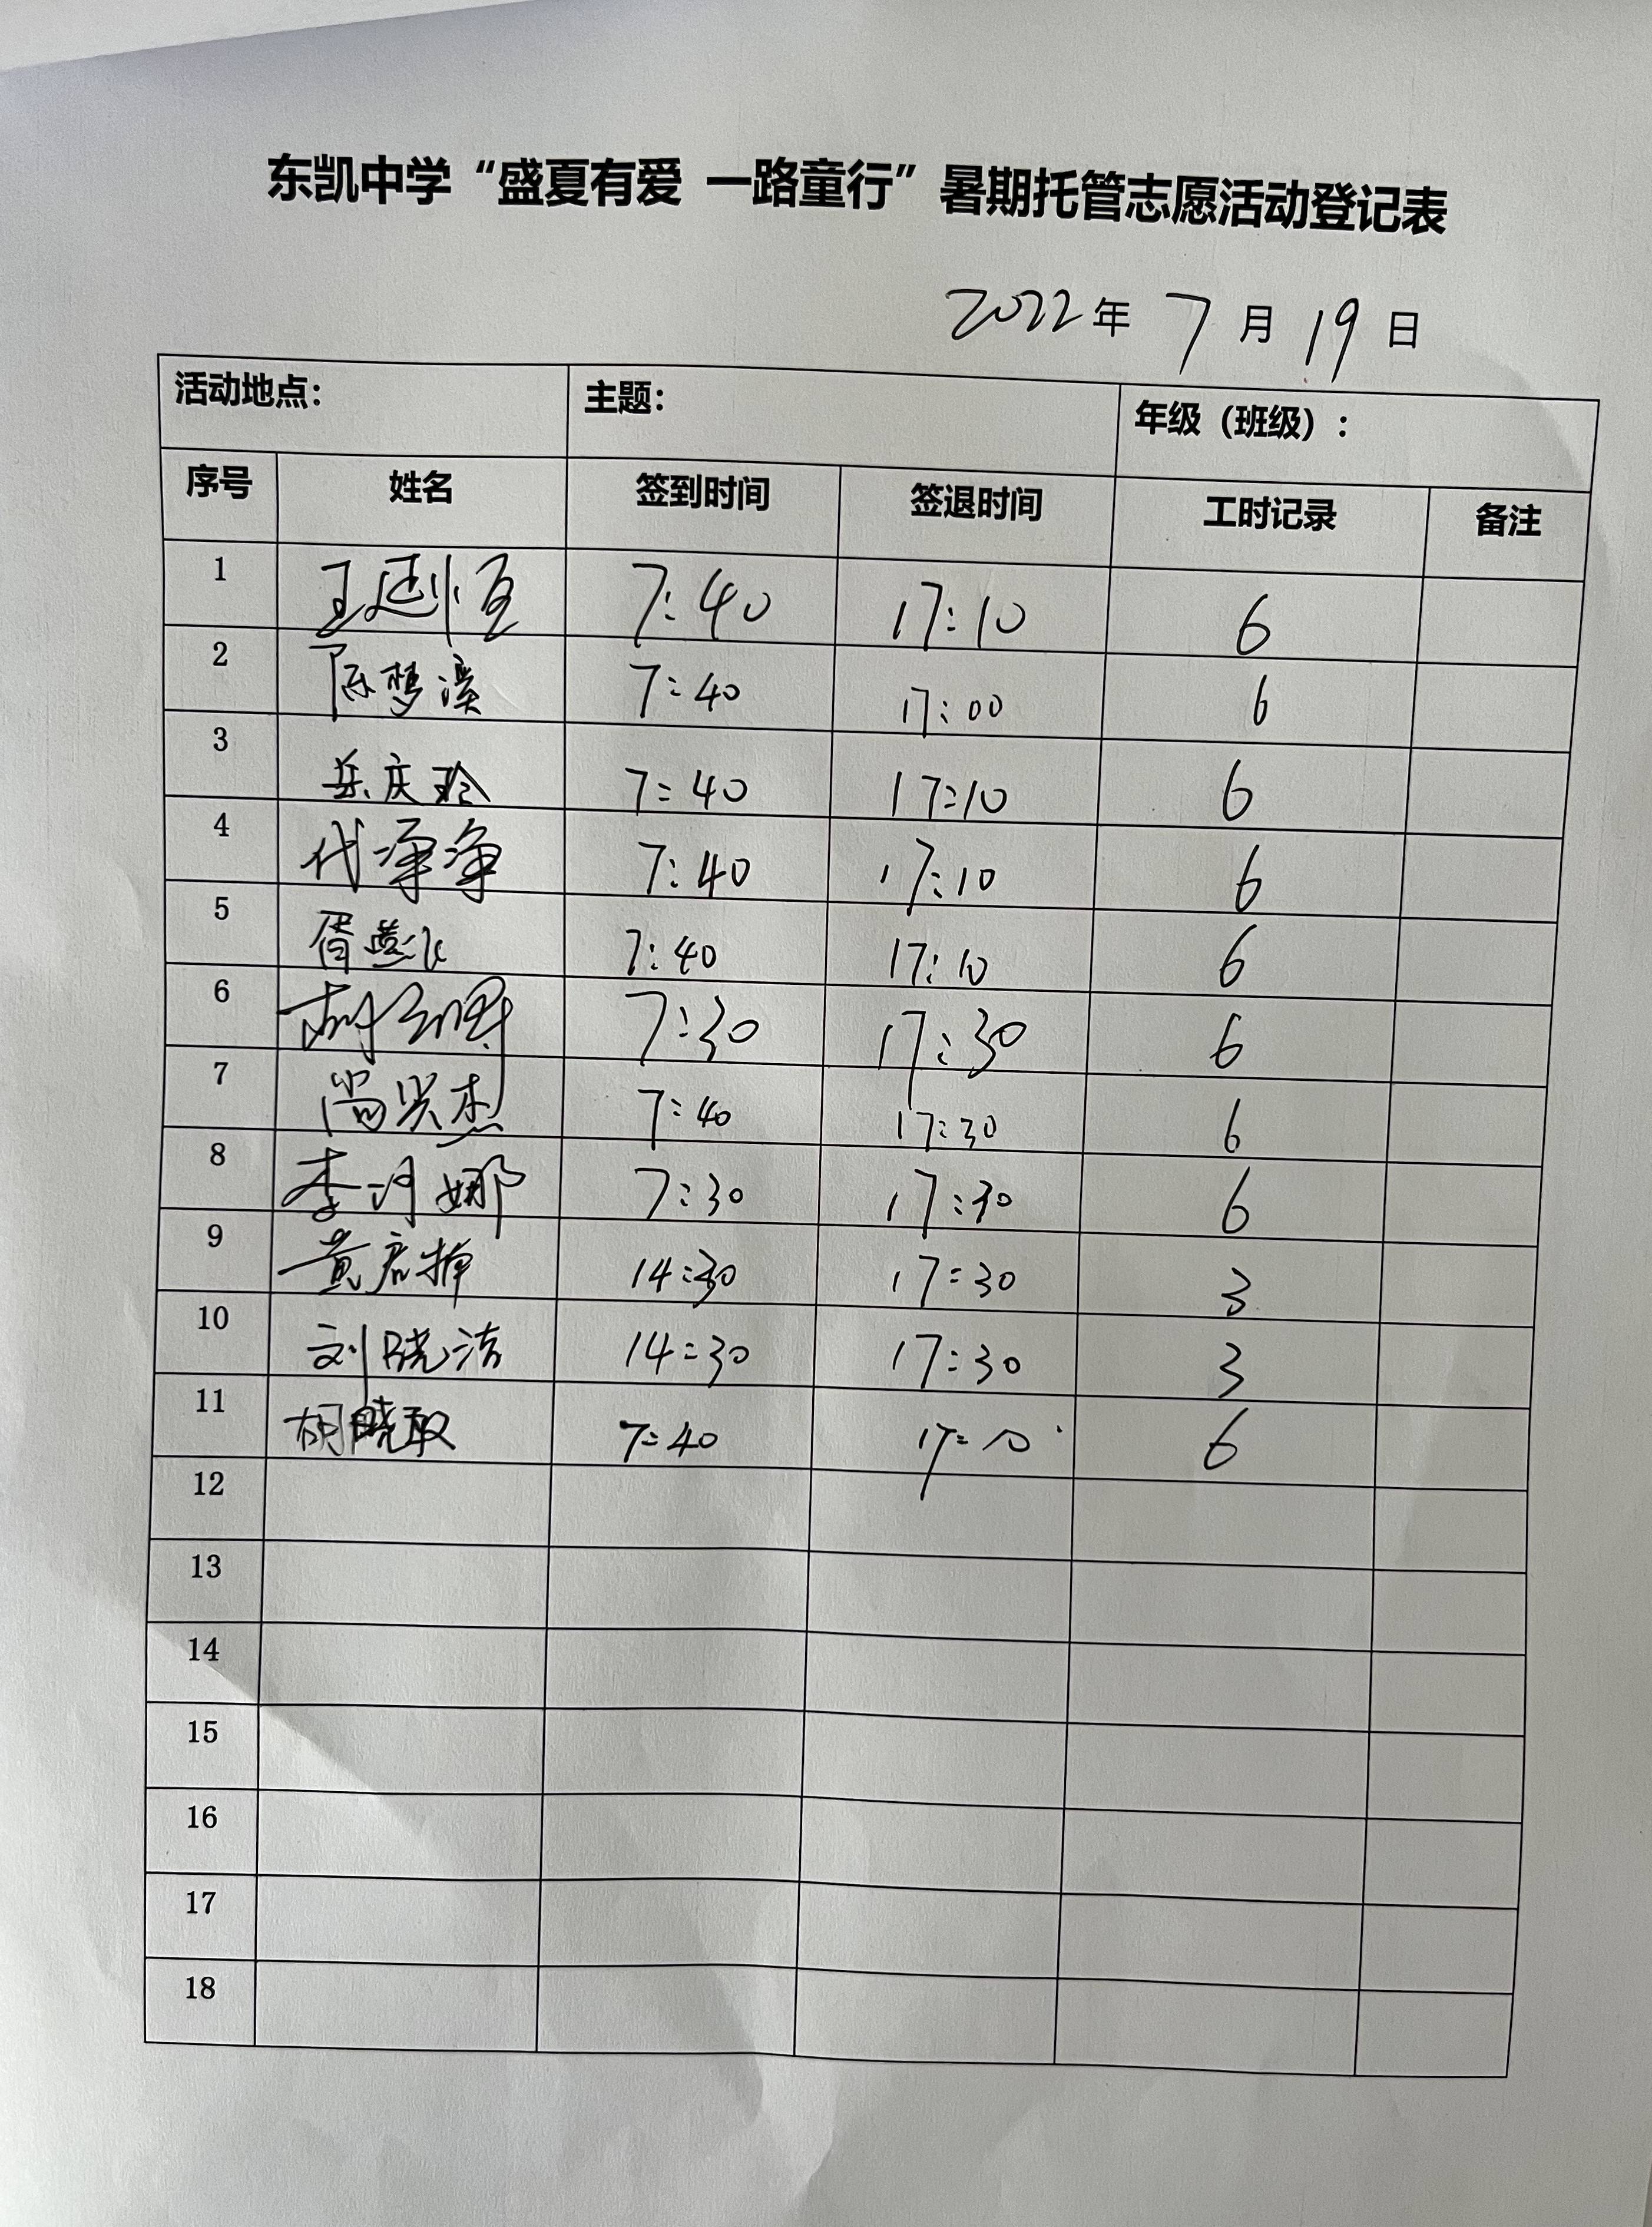 东凯中学“盛夏有爱 一路童行”暑期托管志愿活动登记表
2022年 7月 19日
活动地点： 主题： 年级（班级）：
序号 姓名 签到时间 签退时间 工时记录 备注
1 王廷恒 7:40 17:10 6
2 陈梦溪 7:40 17:00 6
3 岳庆玲 7:40 17:10 6
4 代净净 7:40 17:10 6
5 胥 7:40 17:10 6
6 胡 7:30 17:30 6
7 尚 杰 7:40 17:30 6
8 李 娜 7:30 17:30 6
9 黄 7:14:30 17:30 3
10 刘晓洁 14:30 17:30 3
11 胡晓敢 7:40 17:10 6
12
13
14
15
16
17
18